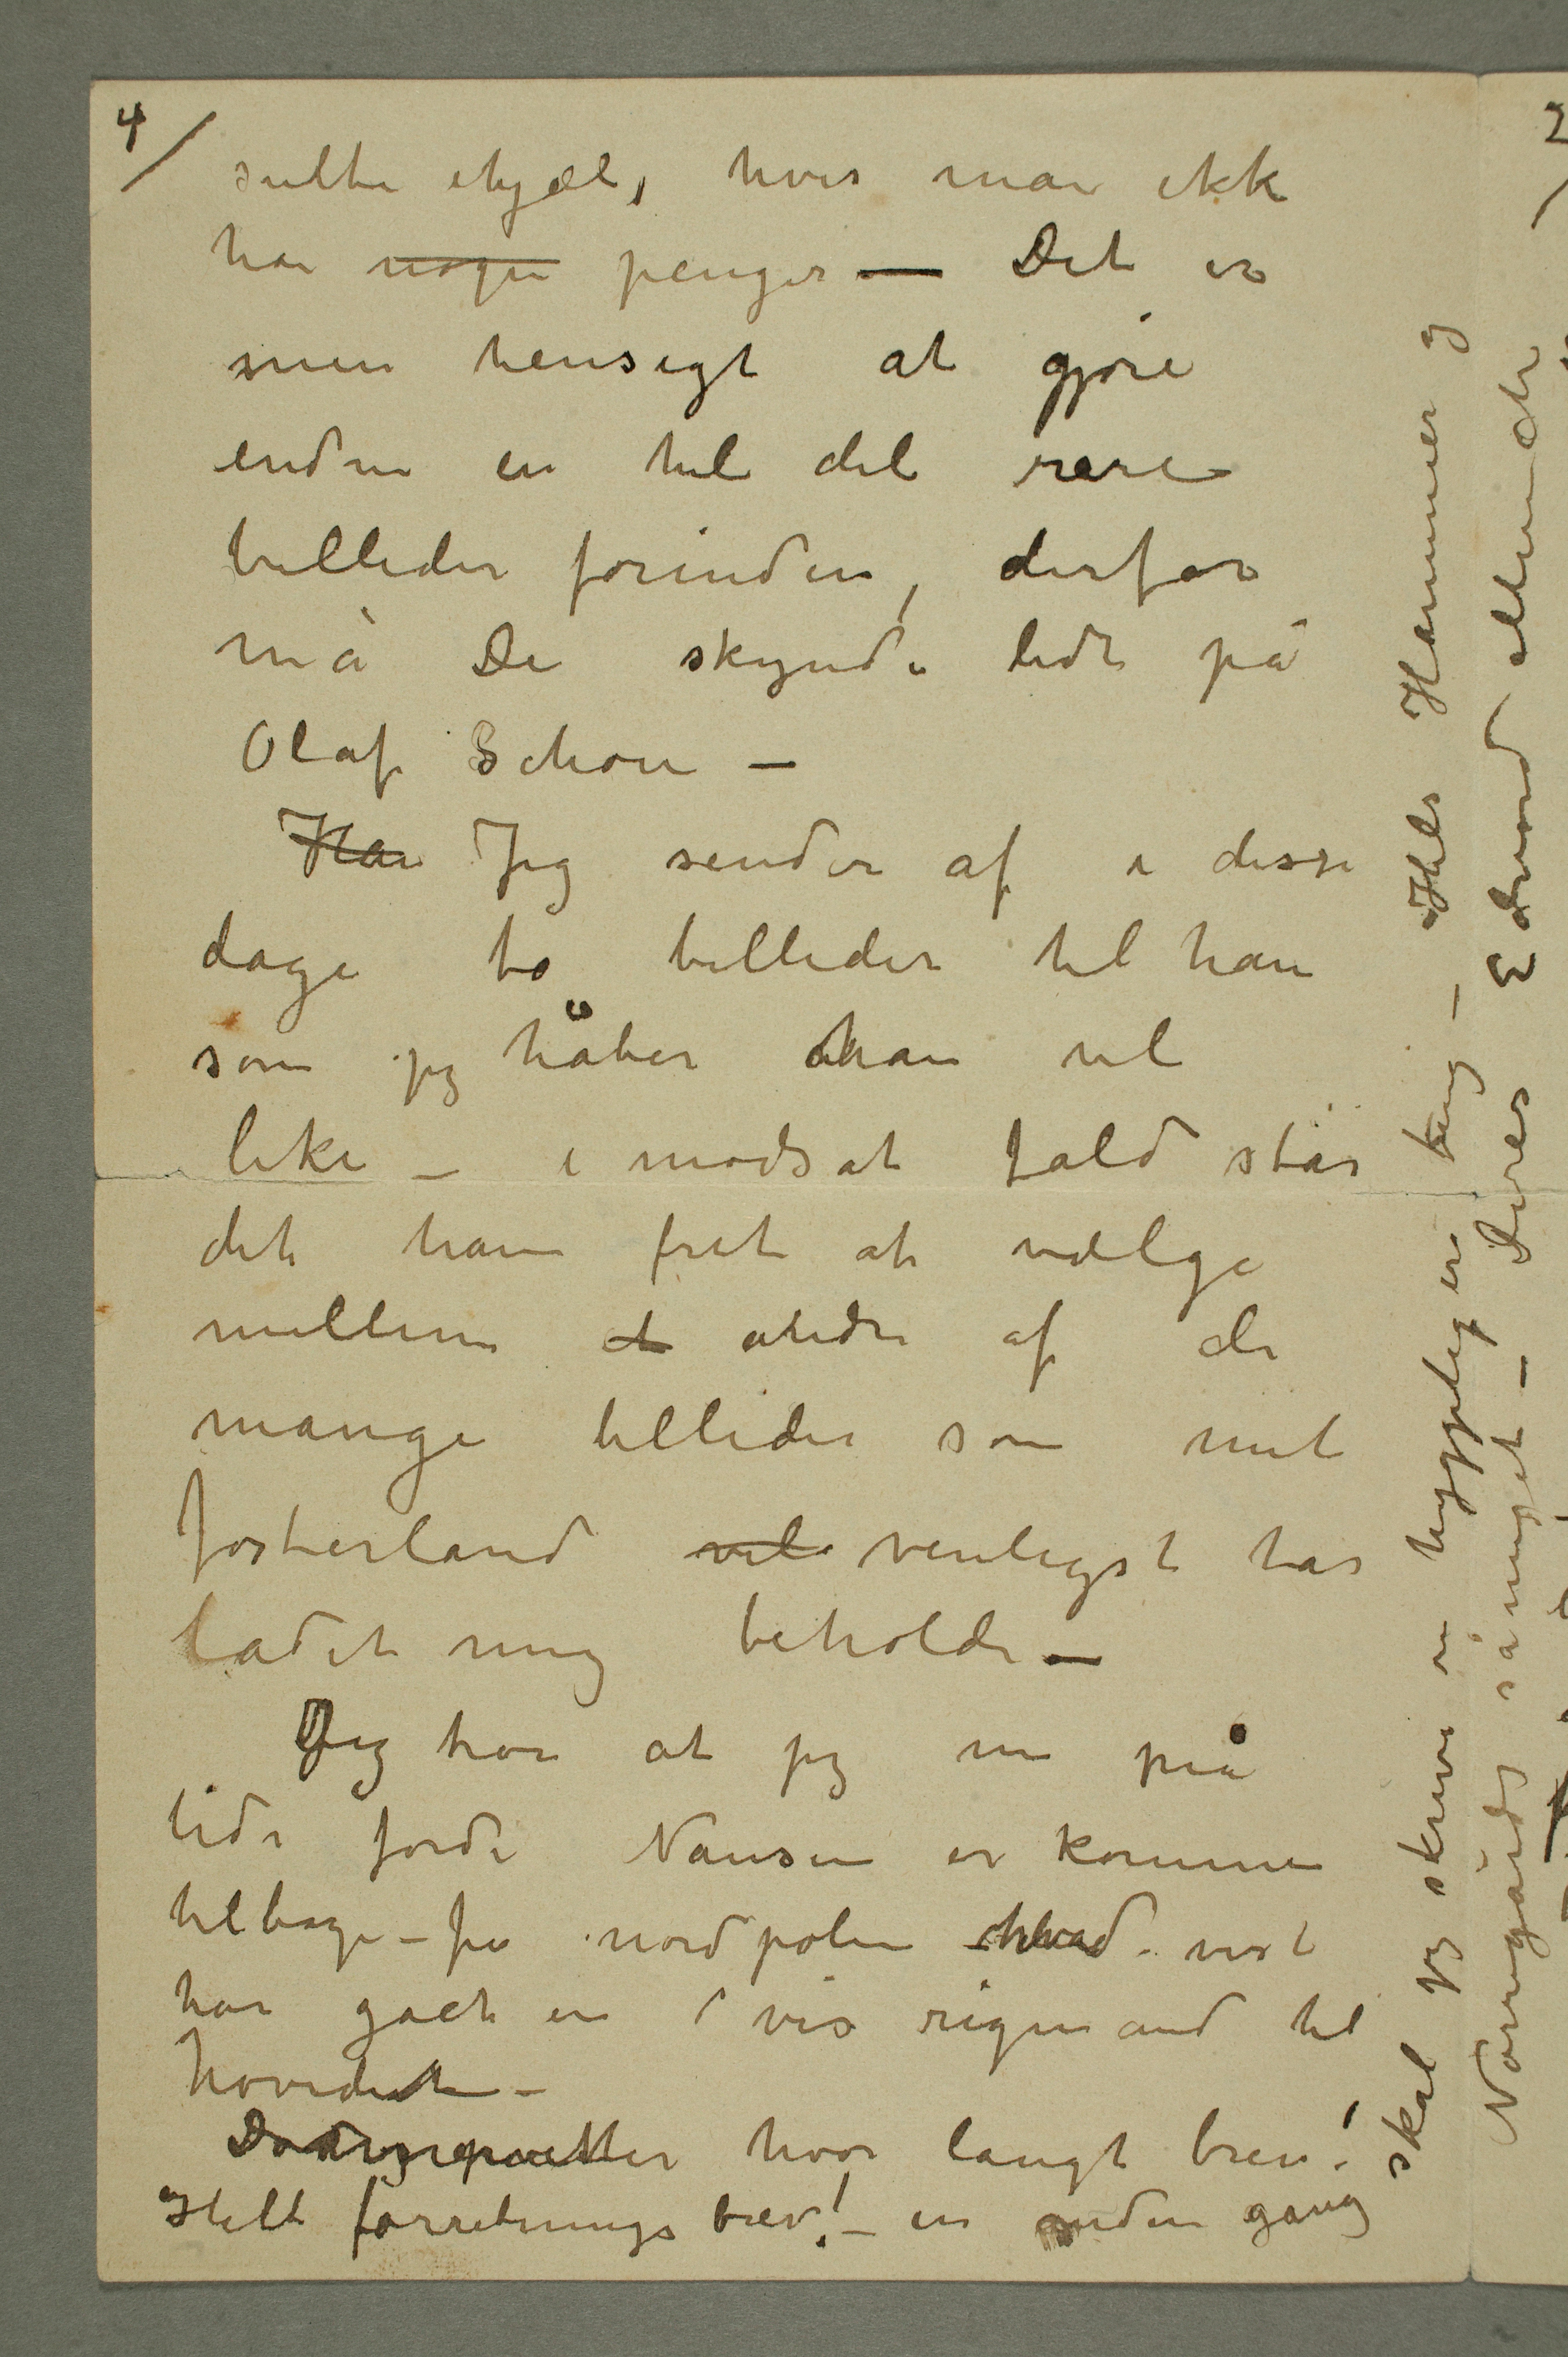 4/
sulte ihjæl, hvis man ikke
har nogen penger — Det er
min hensigt at gjøre
endnu en hel del rare
billeder forinden, derfor
må De skynde lidt på
Olaf Schou –
Han Jeg sender af i disse
dage to billeder til ham
som jeg håber han vil
like – i modsat fald står
det ham frit at vælge
mellem et andre af de
mange billeder som mit
fosterland vil venligst har
ladet mig beholde —
Jeg tror at jeg nu på
tide fordi Nansen er kommen
tilbage – fra nordpolen hvad vist
har gået en vis rigmand til
hovedet –
hvor langt brev!
Helt forretningsbrev! – en anden gang
skal jeg skrive om hyggeligere ting – Hils Hammer og
Nørregårds så meget – Deres Edvard Munch
2